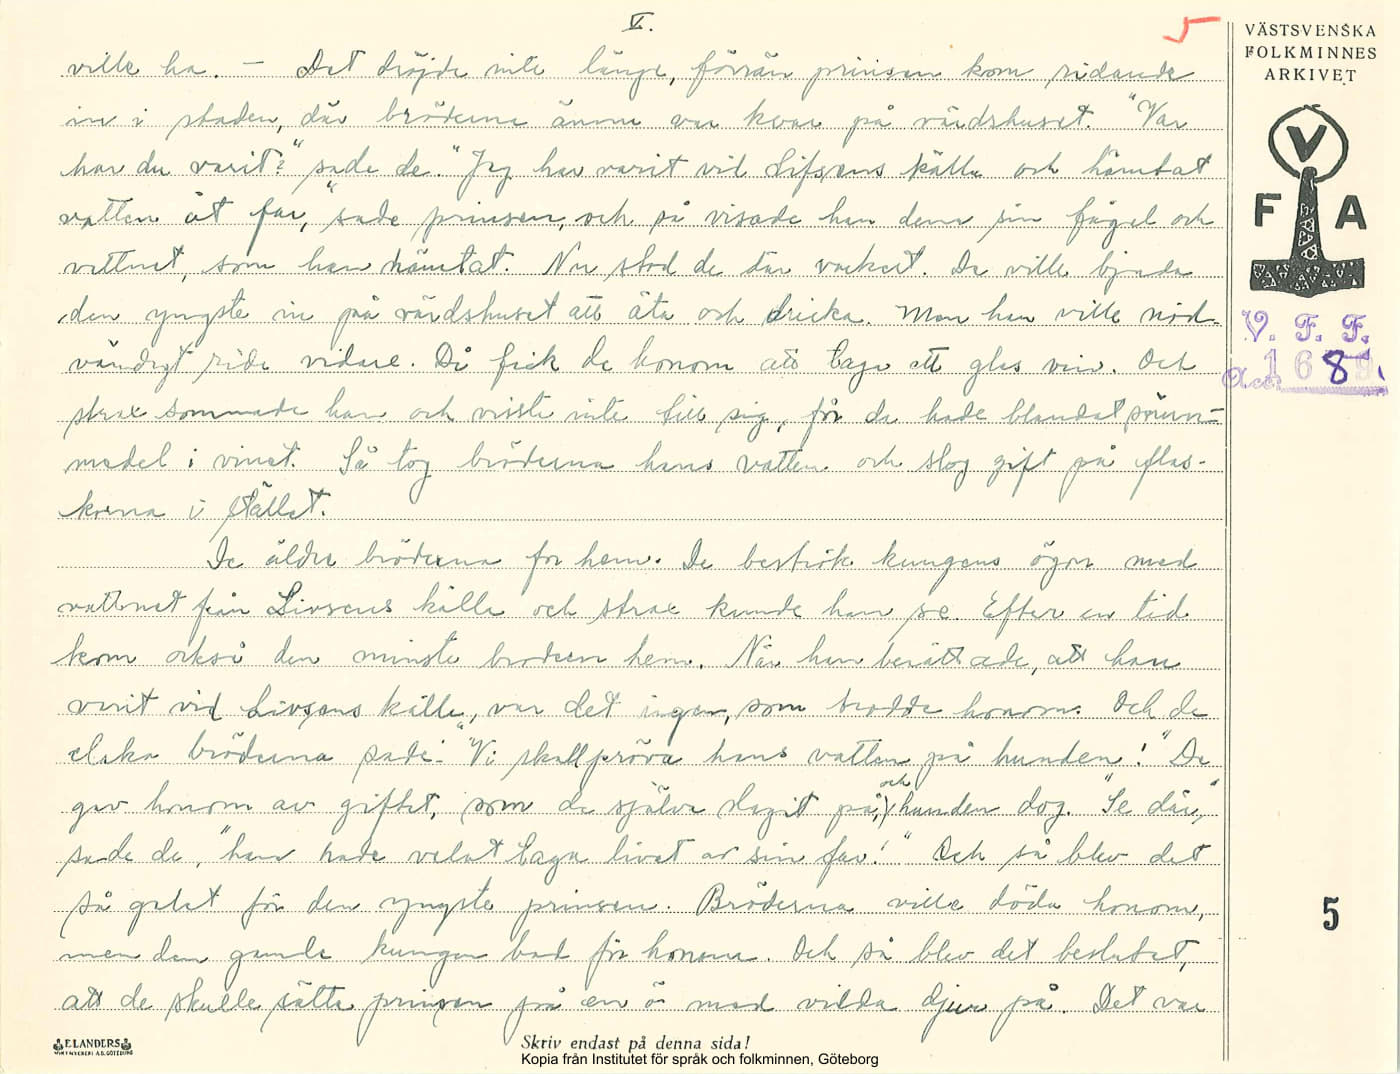 V.
5
VÄSTSVENSKA
FOLKMINNES
ARKIVET
V
F A
V. F. F.
Acc. 1689.
ville ha. — Det dröjde inte länge, förrän prinsen kom ridande
in i staden, där bröderna ännu var kvar på värdshuset. "Var
har du varit?" sade de. "Jag har varit vid Lifsens källa och hämtat
vatten åt far," sade prinsen, och så visade han dem sin fågel och
vattnet, som han hämtat. Nu stod de där vackert. De ville bjuda
den yngste in på värdshuset att äta och dricka. Men han ville nöd-
vändigt rida vidare. Då fick de honom att taga ett glas vin. Och
strax somnade han och visste inte till sig, för de hade blandat sömn-
medel i vinet. Så tog bröderna hans vatten och slog gift på flas-
korna i stället.
De äldre bröderna for hem. De beströk kungens ögon med
vattnet från Livsens källa och strax kunde han se. Efter en tid
kom också den minste brodern hem. När han berättade, att han
varit vid Livsens källa, var det ingen, som trodde honom. Och de
elaka bröderna sade: "Vi skall pröva hans vatten på hunden!" De
gav honom av giftet, som de själva slagit på, och hunden dog. "Se där,"
sade de, "han hade velat taga livet av sin far!" Och så blev det
så galet för den yngste prinsen. Bröderna ville döda honom,
men den gamle kungen bad för honom. Och så blev det beslutat,
att de skulle sätta prinsen på en ö med vilda djur på. Det var
5
E. LANDERS
Skriv endast på denna sida!
Kopia från Institutet för språk och folkminnen, Göteborg